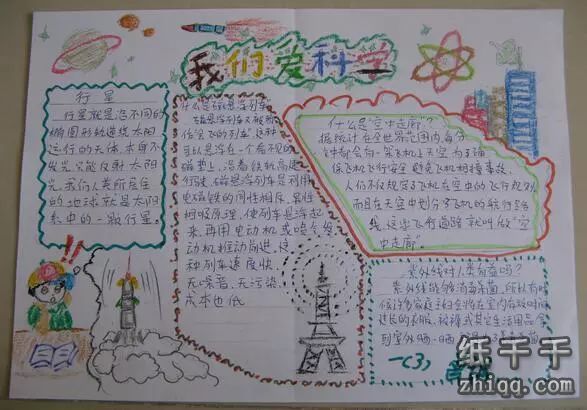 我们爱科学
行星
行星就是沿不同的
椭圆形轨道绕太阳
运行的天体,本身不
发光,只能反射太阳
光。我们人类所居住
的地球就是太阳
系中的一颗行星。
什么是磁悬浮列车
磁悬浮列车又被称
作会飞的列车",这种
列车是浮在一个看不见的
磁垫上,沿着铁轨高速
行驶。磁悬浮列车是利用
电磁铁的同性相斥,异性
相吸原理,使列车悬浮起
来,再用电动机或喷气发
动机推动前进,这
种列车速度快、
无噪音、无污染
成本也低
什么是"空中走廊"?
据统计在全世界范围内每分
钟都会有一架飞机上天空,为了确
保飞机飞行安全,避免飞机相撞事故,
人们不仅规定了飞机在空中的飞行规则,
而且在天空中划分了飞机的航行路
线,这些飞行道路就叫做"空
中走廊"。
紫外线对人类有益吗?
紫外线能够消毒杀菌,所以有时
候许多家庭主妇会将在室内放时间
过长的衣服、被褥或其它生活用品拿
到室外晒一晒
一(3)
纸千千
zhiqq.com